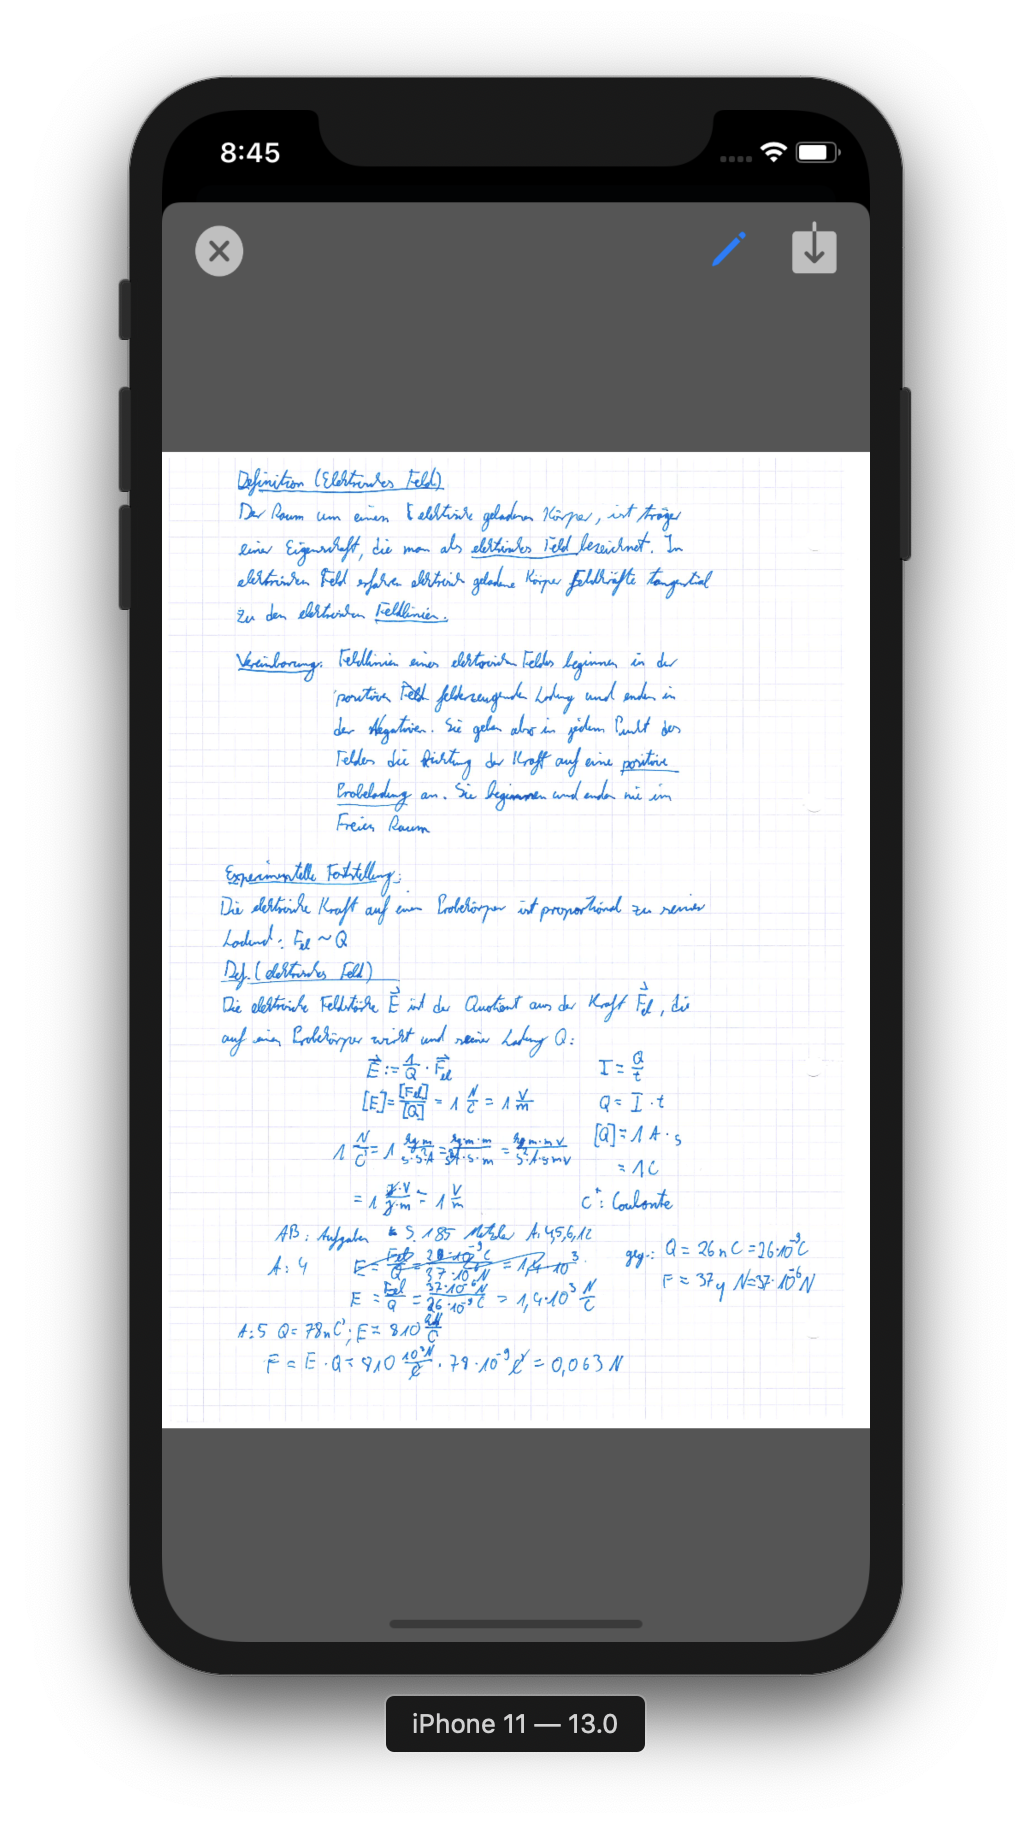 8:45
Definition (Elektrisches Feld)
Der Raum um einen elektrisch geladenen Körper, ist träger
einer Eigenschaft, die man als elektrisches Feld bezeichnet. Im
elektrischen Feld erfahren elektrisch geladene Körper Feldkräfte tangential
zu den elektrischen Feldlinien.
Vereinbarung: Feldlinien eines elektrischen Feldes beginnen in der
positiven felderzeugenden Ladung und enden in
der Negativen. Sie geben also in jedem Punkt des
Feldes die Richtung der Kraft auf eine positive
Probeladung an. Sie beginnen und enden nie im
Freien Raum
Experimentelle Feststellung:
Die elektrische Kraft auf einen Probekörper ist proportional zu seiner
: Fel ~ Q
Def. (elektrisches Feld)
Die elektrische Feldstärke E⃗ ist der Quotient aus der Kraft F⃗el, die
auf einen Probekörper wirkt und seiner Ladung Q:
E⃗ := 1/Q · F⃗el I = Q/t
[E] = [Fel]/[Q] = 1 N/C = 1 V/m Q = I · t
[Q] = 1 A · s
1 N/C = 1 kg m/s²·s·A = kg m·m/s²A·s·m = kg m·m V/s²·A·s m V
= 1 C
= 1 J·V/J·m = 1 V/m C: Coulombe
AB: Aufgaben S. 185 Metzler A: 4,5,6,12
A: 4 geg.: Q = 26 nC = 26·10⁻⁹C
F = 37 μN = 37·10⁻⁶N
E = Fel/Q = 37·10⁻⁶N/26·10⁻⁹C = 1,4·10³ N/C
A: 5 Q = 78nC; E = 810 kN/C
F = E · Q = 810 10³N/C · 78·10⁻⁹C = 0,063 N
iPhone 11 — 13.0